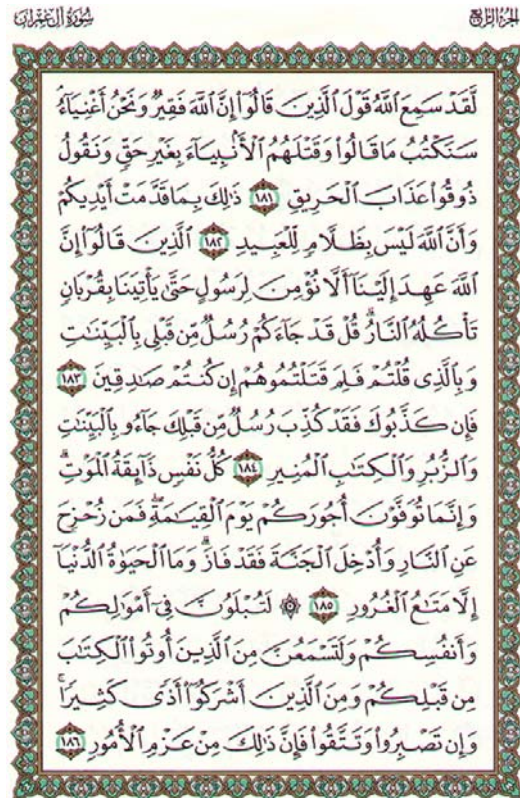 سُورَةُ آلِ عِمْرَانَ
الجُزْءُ الرَّابِعُ
لَّقَدْ سَمِعَ ٱللَّهُ قَوْلَ ٱلَّذِينَ قَالُوٓا۟ إِنَّ ٱللَّهَ فَقِيرٌ وَنَحْنُ أَغْنِيَآءُ ۘ
سَنَكْتُبُ مَا قَالُوا۟ وَقَتْلَهُمُ ٱلْأَنۢبِيَآءَ بِغَيْرِ حَقٍّ وَنَقُولُ
ذُوقُوا۟ عَذَابَ ٱلْحَرِيقِ ١٨١ ذَٰلِكَ بِمَا قَدَّمَتْ أَيْدِيكُمْ
وَأَنَّ ٱللَّهَ لَيْسَ بِظَلَّامٍ لِّلْعَبِيدِ ١٨٢ ٱلَّذِينَ قَالُوٓا۟ إِنَّ
ٱللَّهَ عَهِدَ إِلَيْنَآ أَلَّا نُؤْمِنَ لِرَسُولٍ حَتَّىٰ يَأْتِيَنَا بِقُرْبَانٍ
تَأْكُلُهُ ٱلنَّارُ ۗ قُلْ قَدْ جَآءَكُمْ رُسُلٌ مِّن قَبْلِى بِٱلْبَيِّنَٰتِ
وَبِٱلَّذِى قُلْتُمْ فَلِمَ قَتَلْتُمُوهُمْ إِن كُنتُمْ صَٰدِقِينَ ١٨٣
فَإِن كَذَّبُوكَ فَقَدْ كُذِّبَ رُسُلٌ مِّن قَبْلِكَ جَآءُو بِٱلْبَيِّنَٰتِ
وَٱلزُّبُرِ وَٱلْكِتَٰبِ ٱلْمُنِيرِ ١٨٤ كُلُّ نَفْسٍ ذَآئِقَةُ ٱلْمَوْتِ ۗ
وَإِنَّمَا تُوَفَّوْنَ أُجُورَكُمْ يَوْمَ ٱلْقِيَٰمَةِ ۖ فَمَن زُحْزِحَ
عَنِ ٱلنَّارِ وَأُدْخِلَ ٱلْجَنَّةَ فَقَدْ فَازَ ۗ وَمَا ٱلْحَيَوٰةُ ٱلدُّنْيَآ
إِلَّا مَتَٰعُ ٱلْغُرُورِ ١٨٥ ۞ لَتُبْلَوُنَّ فِىٓ أَمْوَٰلِكُمْ
وَأَنفُسِكُمْ وَلَتَسْمَعُنَّ مِنَ ٱلَّذِينَ أُوتُوا۟ ٱلْكِتَٰبَ
مِن قَبْلِكُمْ وَمِنَ ٱلَّذِينَ أَشْرَكُوٓا۟ أَذًى كَثِيرًا ۚ
وَإِن تَصْبِرُوا۟ وَتَتَّقُوا۟ فَإِنَّ ذَٰلِكَ مِنْ عَزْمِ ٱلْأُمُورِ ١٨٦